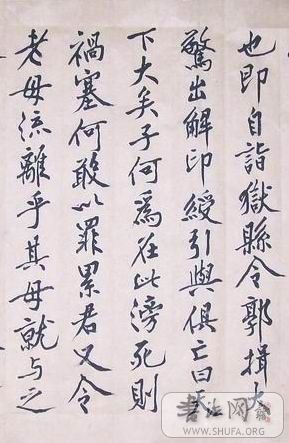 也即自詣獄縣令郭揖大
驚出解印綬引與俱亡曰天
下大矣子何爲在此滂死則
禍塞何敢以罪累君又令
老母流離乎其母就与之
书法网
WWW.SHUFA.ORG